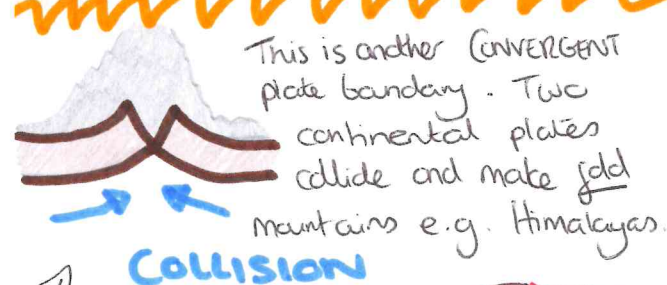 This is another CONVERGENT
plate boundary. Two
continental plates
collide and make fold
mountains e.g. Himalayas.
COLLISION